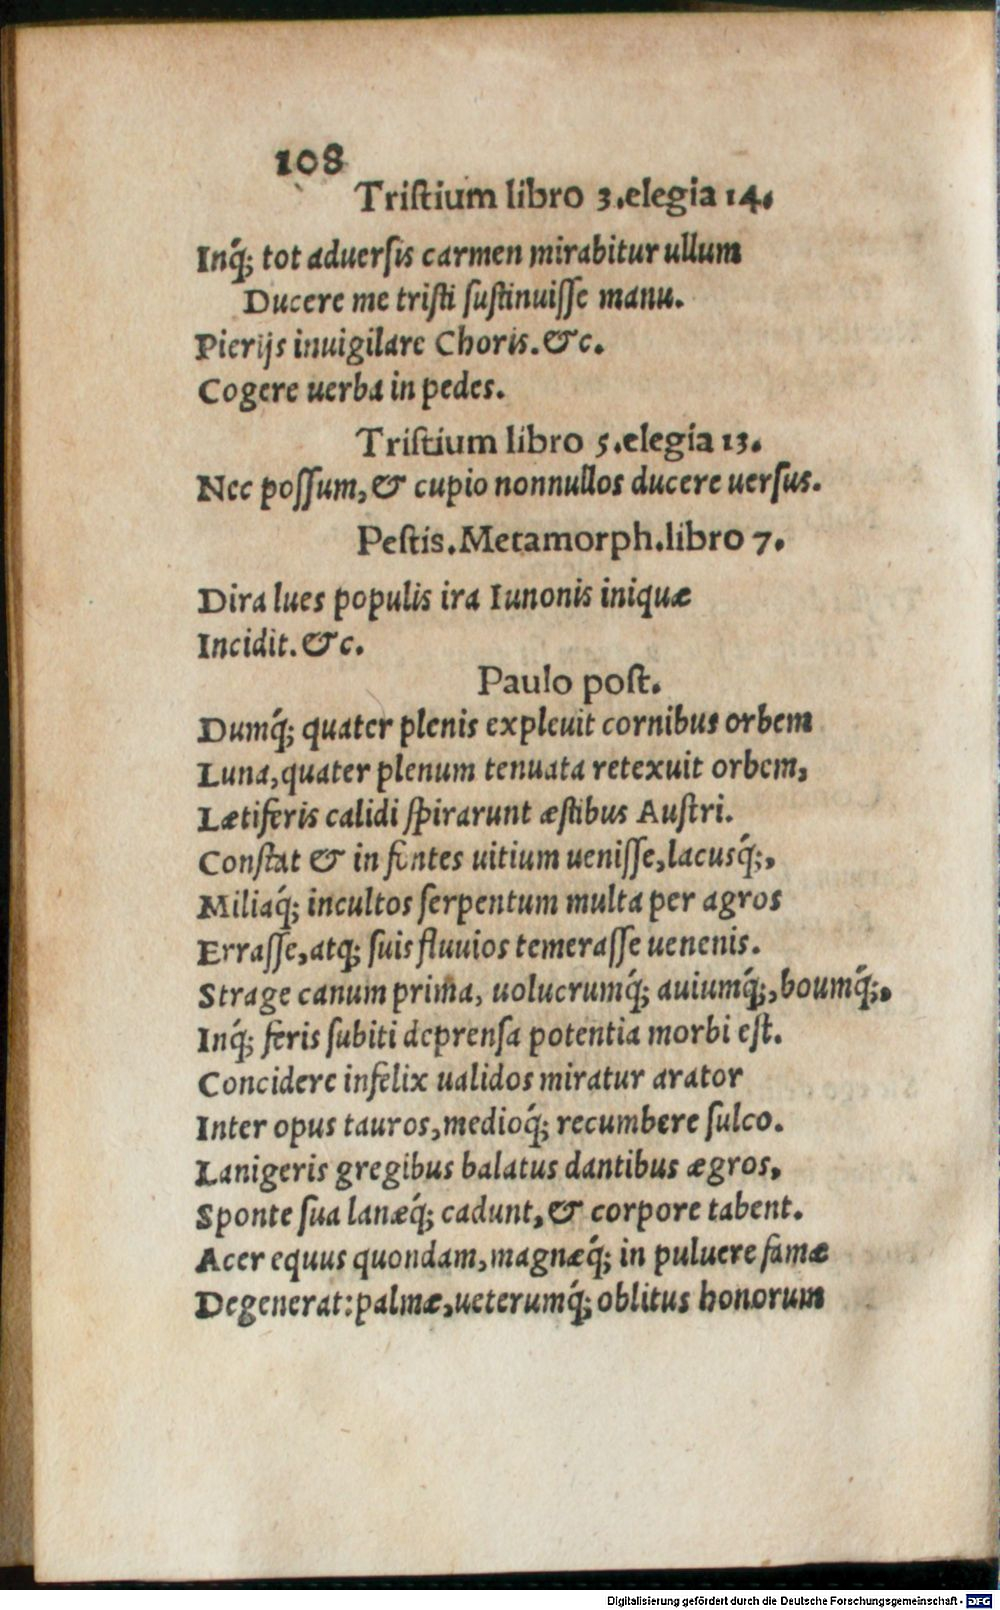 108
Tristium libro 3.elegia 14.
Inq́; tot aduersis carmen mirabitur ullum
Ducere me tristi sustinuisse manu.
Pierijs inuigilare Choris.&c.
Cogere uerba in pedes.
Tristium libro 5.elegia 13.
Nec possum,& cupio nonnullos ducere uersus.
Pestis.Metamorph.libro 7.
Dira lues populis ira Iunonis iniquæ
Incidit.&c.
Paulo post.
Dumq́; quater plenis expleuit cornibus orbem
Luna,quater plenum tenuata retexuit orbem,
Lætiferis calidi spirarunt æstibus Austri.
Constat & in fontes uitium uenisse,lacusq́;,
Miliaq́; incultos serpentum multa per agros
Errasse,atq; suis fluuios temerasse uenenis.
Strage canum prima, uolucrumq́; auiumq́;,boumq́;,
Inq́; feris subiti deprensa potentia morbi est.
Concidere infelix ualidos miratur arator
Inter opus tauros,medioq́; recumbere sulco.
Lanigeris gregibus balatus dantibus ægros,
Sponte sua lanæq́; cadunt,& corpore tabent.
Acer equus quondam,magnæq́; in puluere famæ
Degenerat:palmæ,ueterumq́; oblitus honorum
Digitalisierung gefördert durch die Deutsche Forschungsgemeinschaft - DFG